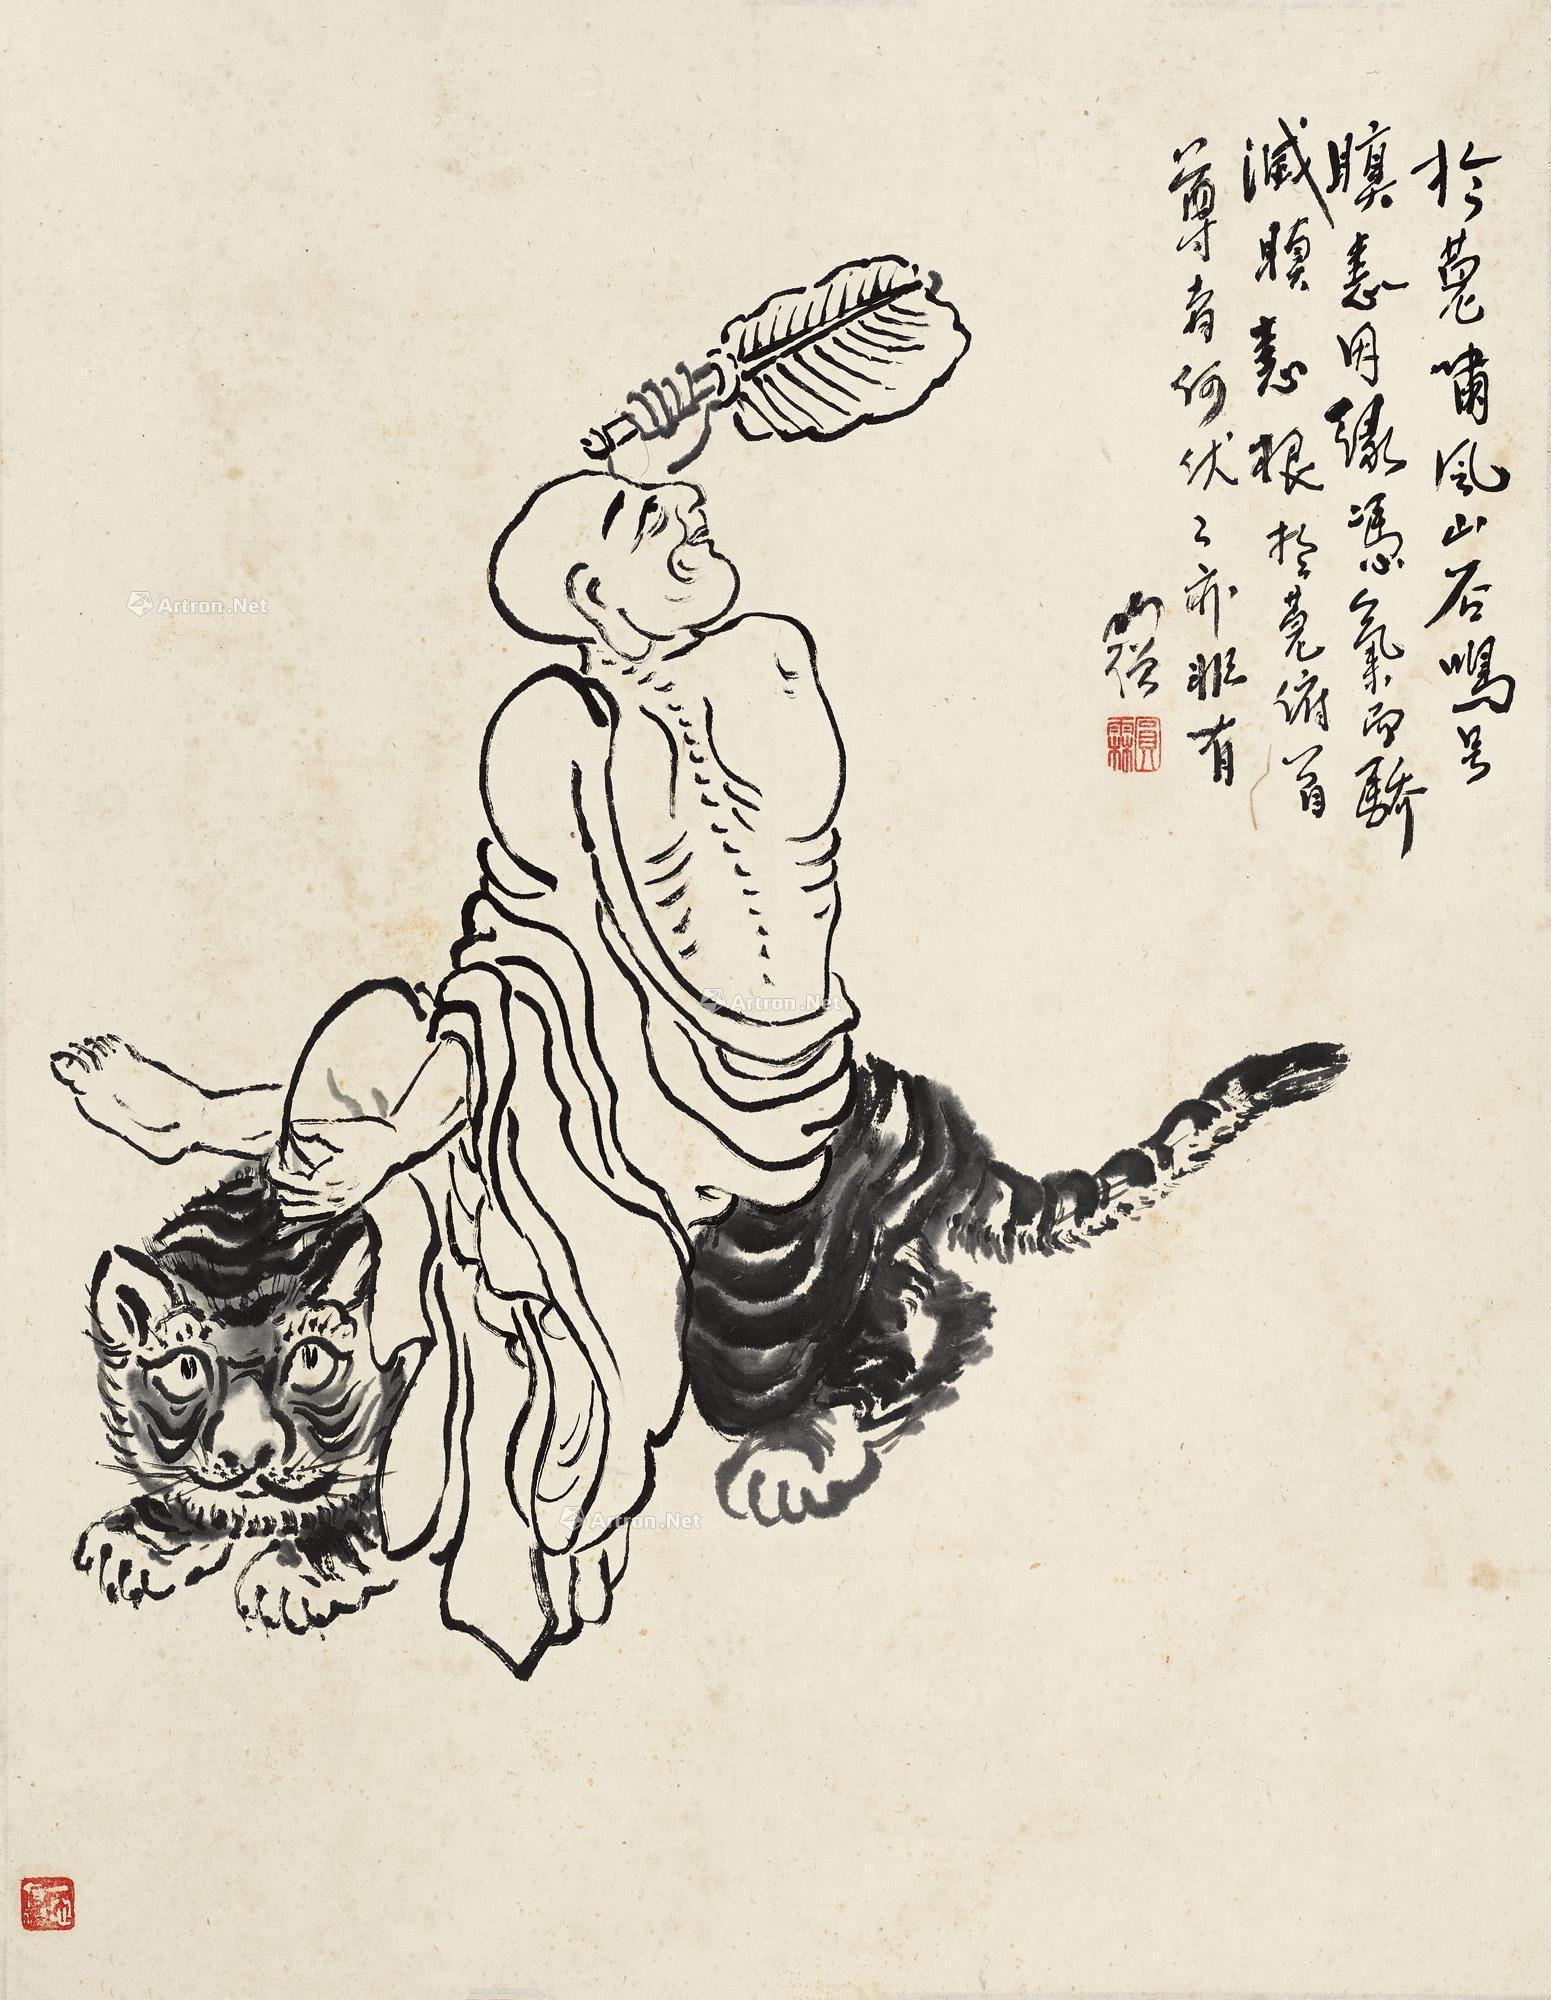 於菟嘯風山石鳴号
瞋恚用緣憑氣而驕
滅瞋恚根於菟俯首
尊者何伏之亦非有
圓霖
Artron.Net
Artron.Net
Artron.Net